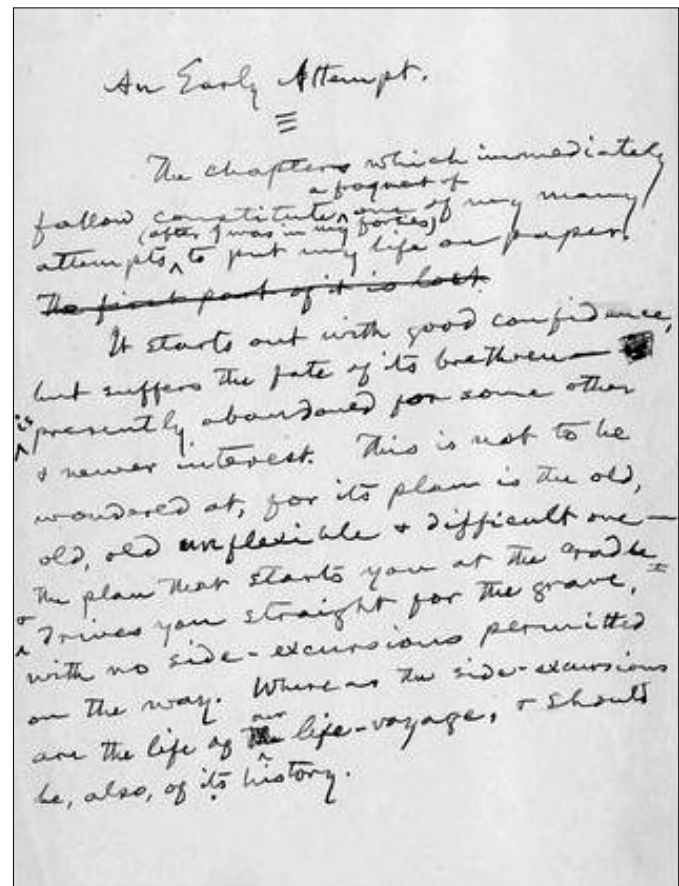 An Early Attempt.
The chapters which immediately
a fragment of
follow constitute one of my many
(after I was in my forties)
attempts to put my life on paper.
The first part of it is lost.
It starts out with good confidence,
but suffers the fate of its brethren—
is
presently abandoned for some other
& newer interest. This is not to be
wondered at, for its plan is the old,
old, old unflexible & difficult one—
the plan that starts you at the cradle
&
drives you straight for the grave,
with no side-excursions permitted
on the way. Whereas the side-excursions
our
are the life of the life-voyage, & should
be, also, of its history.